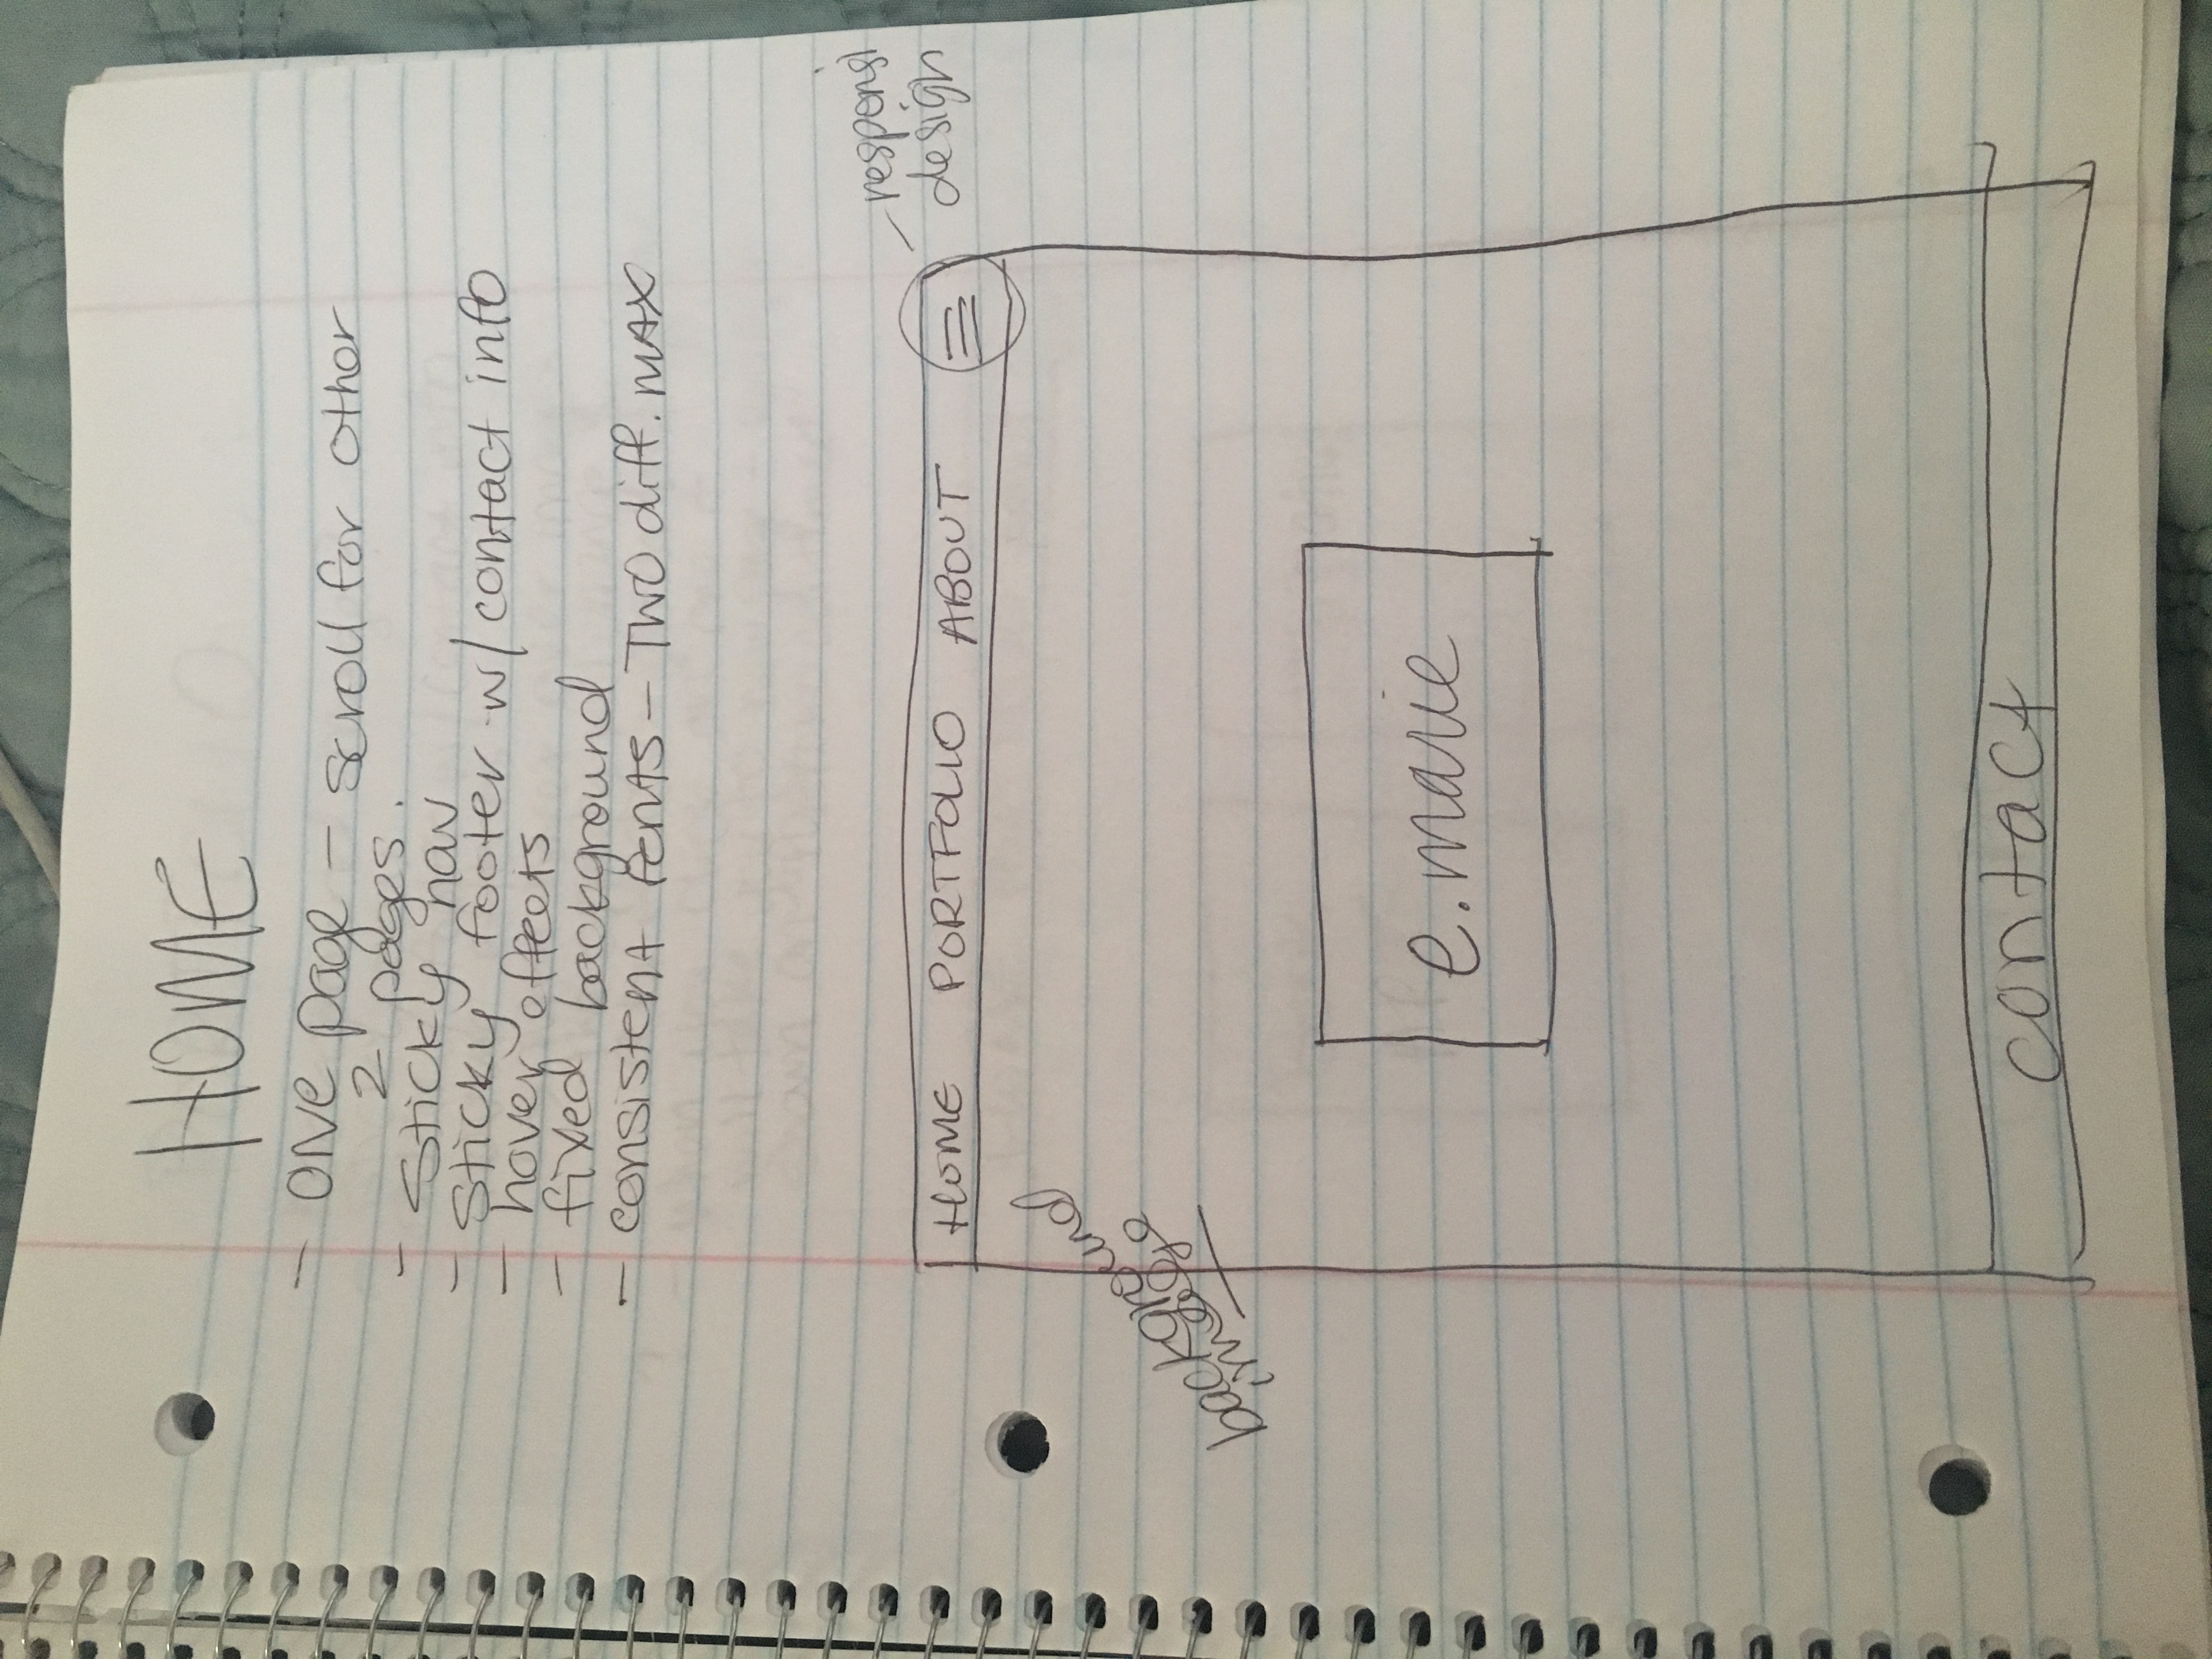 HOME
- ONE page - scroll for other
2 pages.
- Sticky nav
- Sticky footer w/ contact info
- hover effects
- fixed background
- consistent fonts - TWO diff. MAX
- responsi
design
HOME PORTFOLIO ABOUT
background
image
e.marie
contact